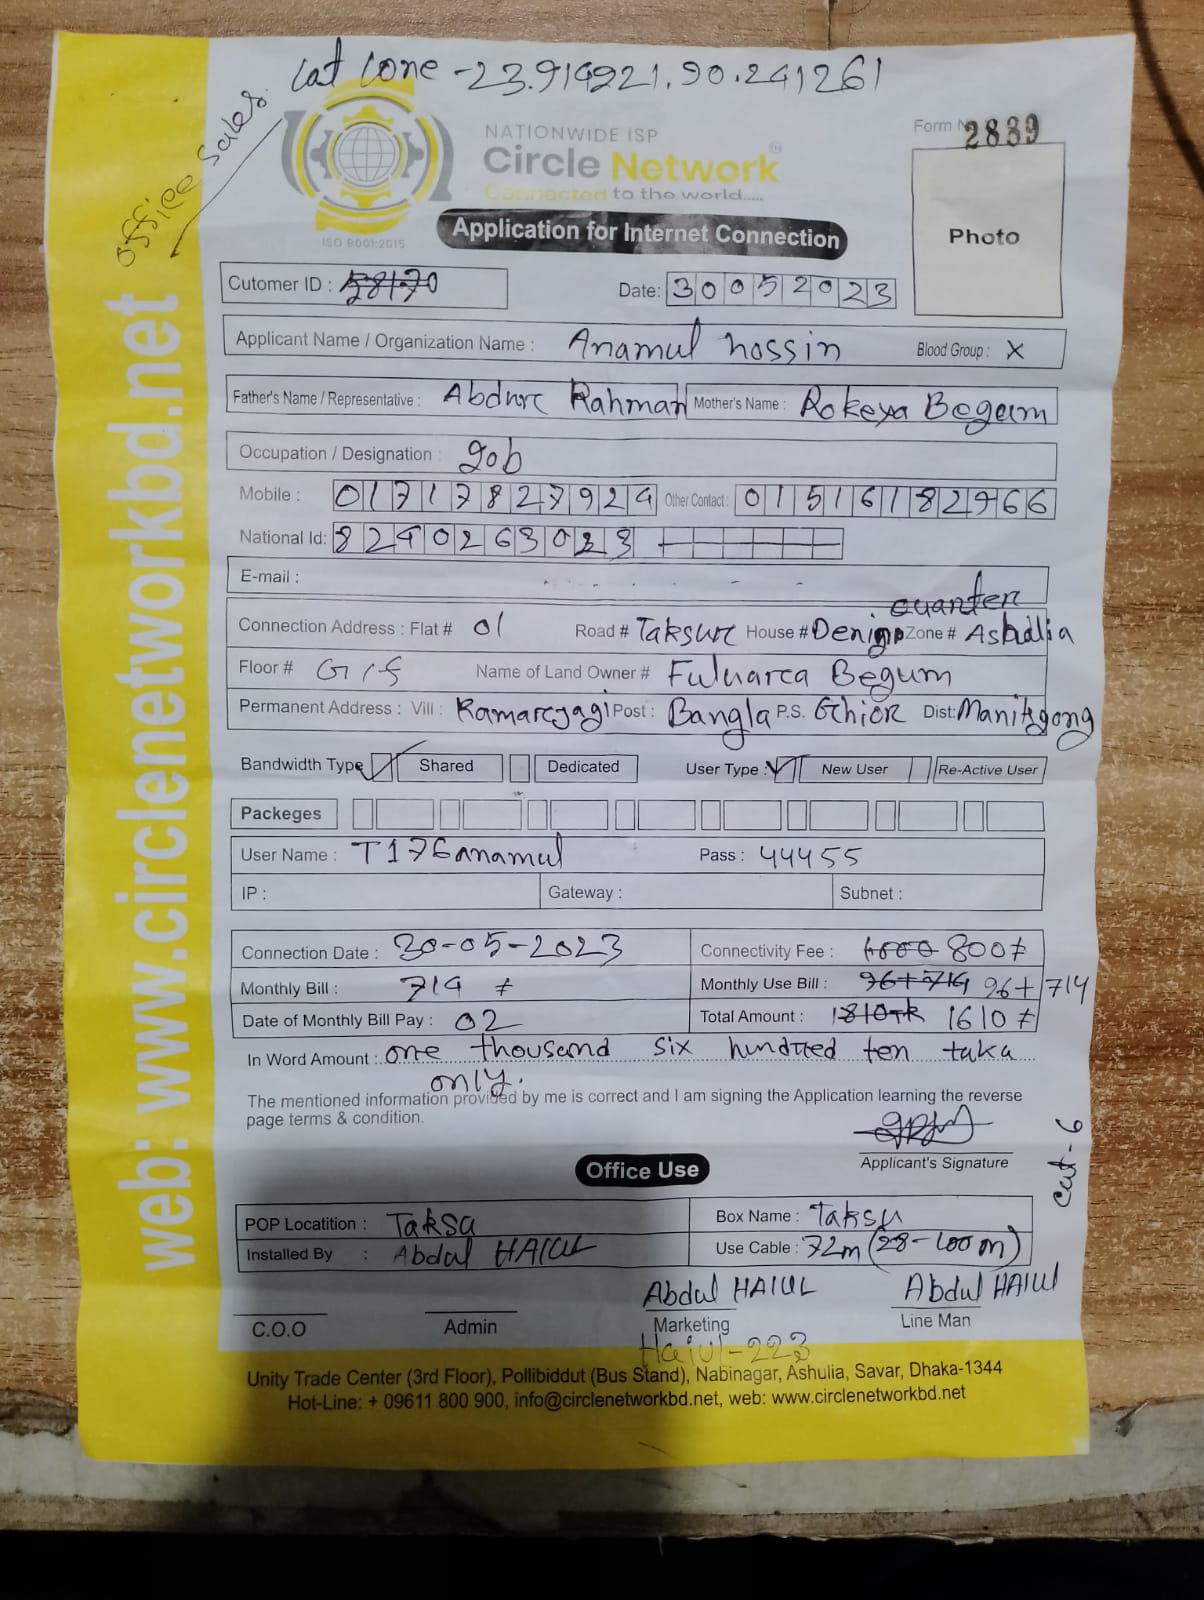 Lat Lone -23.914921, 90.241261
office sales.
NATIONWIDE ISP
Circle Network
Connected to the world.....
ISO 9001:2015
Form N 2889
Application for Internet Connection
Photo
Cutomer ID : 58170
Date: 30052023
Applicant Name / Organization Name : Anamul hossin Blood Group : X
Father's Name / Representative : Abdure Rahman Mother's Name : Rokeya Begum
Occupation / Designation : Job
Mobile : 01717827924 Other Contact : 01516182966
National Id: 8240263023
E-mail :
Connection Address : Flat # 01 Road # Taksure House # Zone # Ashulia
Floor # Name of Land Owner # Begum
Permanent Address : Vill : Post : Bangla P.S. Ghior Dist: Manikgong
Bandwidth Type Shared Dedicated User Type : New User Re-Active User
Packeges
User Name : T176anamul Pass : 44455
IP : Gateway : Subnet :
Connection Date : 30-05-2023 Connectivity Fee : 1000 800/=
Monthly Bill : 714 /= Monthly Use Bill : 96+714 96+714
Date of Monthly Bill Pay : 02 Total Amount : 1810TK 1610/=
In Word Amount : one thousand six hundred ten taka
only.
The mentioned information provided by me is correct and I am signing the Application learning the reverse
page terms & condition.
Applicant's Signature
cat-6
Office Use
POP Locatition : Taksa Box Name : Taksu
Installed By : Abdul HAIUL Use Cable : 72m (28-100m)
Abdul HAIUL Abdul HAIUL
C.O.O Admin Marketing Line Man
Haiul-223
Unity Trade Center (3rd Floor), Pollibiddut (Bus Stand), Nabinagar, Ashulia, Savar, Dhaka-1344
Hot-Line: + 09611 800 900, info@circlenetworkbd.net, web: www.circlenetworkbd.net
web: www.circlenetworkbd.net